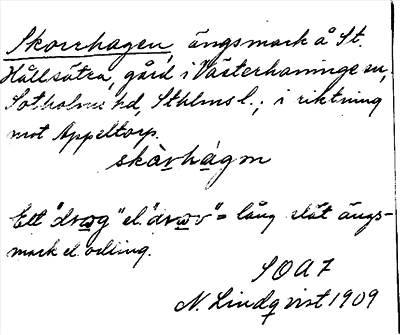 Skorrhagen, ängsmark å St.
Hållsätra, gård i Västerhaninge sn,
Sotholms hd, Sthlms l.; i riktning
mot Appeltorp.
skàrhágɷn
Ett "drœg" el. "drœv" = lång slät ängs-
mark el. odling.
SOA 7
N. Lindqvist 1909